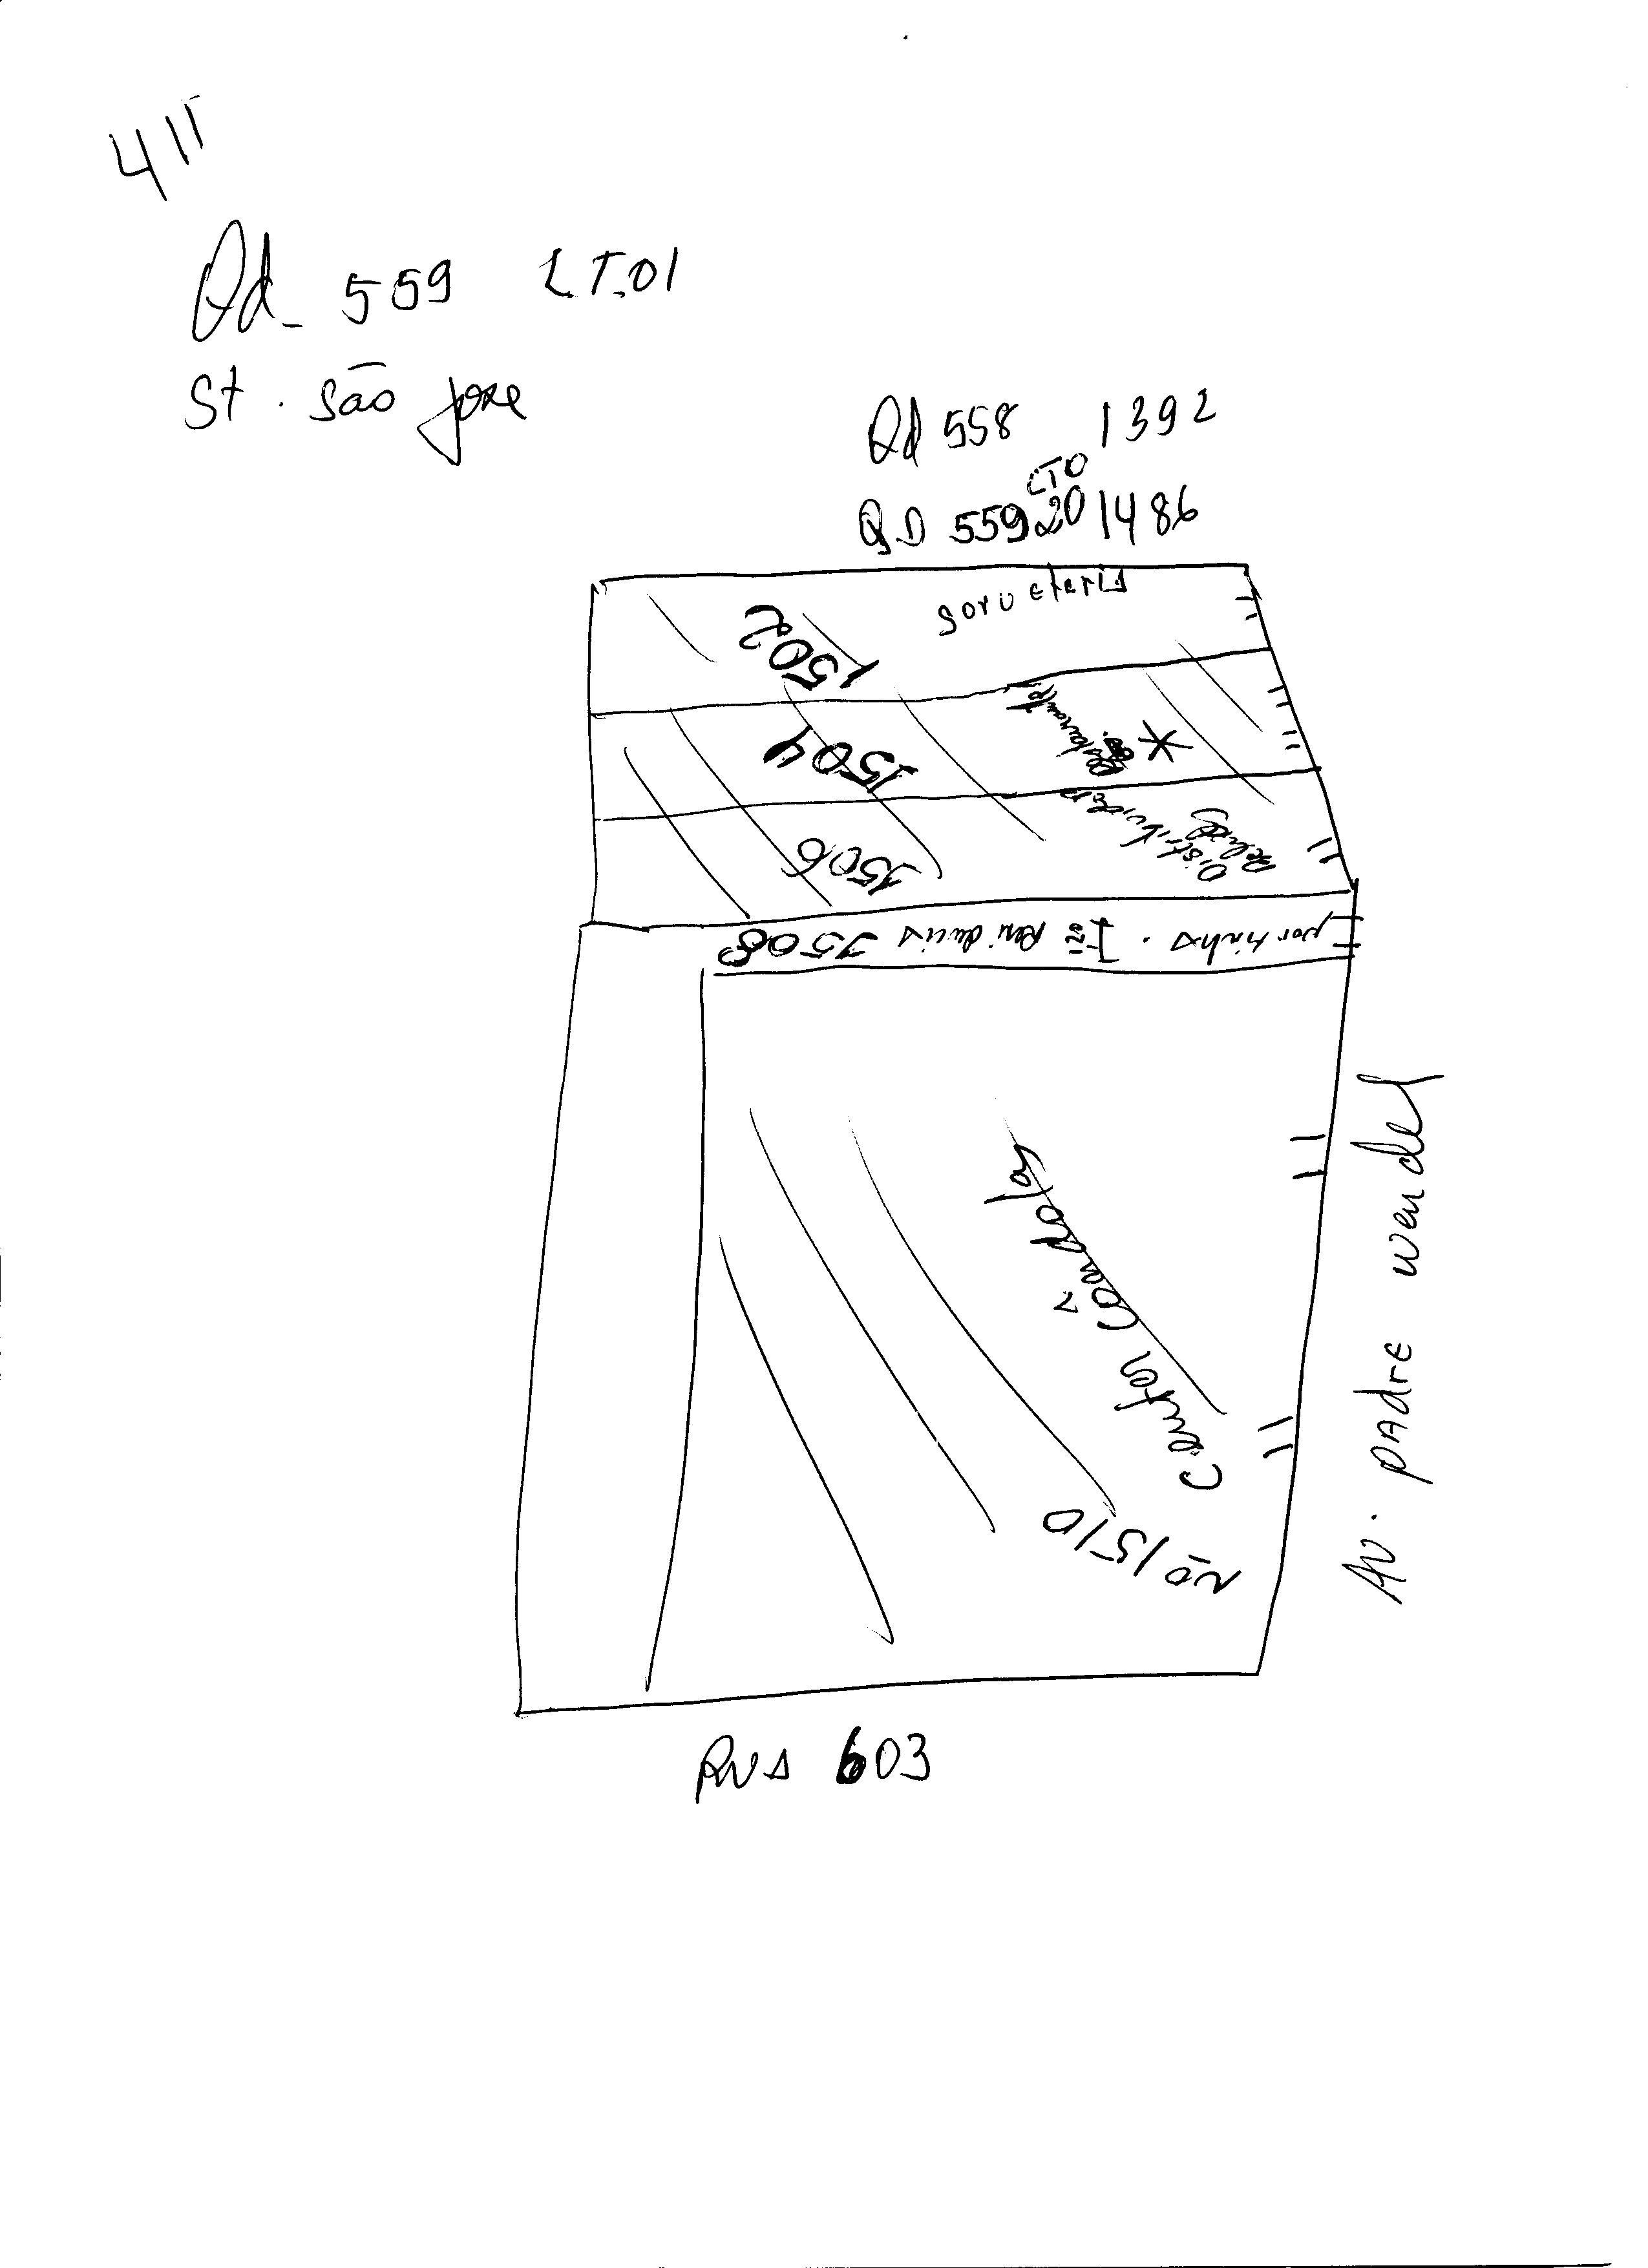 411
Qd_ 559 LT.01
St. são jose
Qd 558 1392
LTO
QD 559 20 1486
sorveteris
1502
Restaurante
1504
Distribuidora
Bebidas
1506
portinho. Residencis 1508
Center Cândola
Nº 1510
Av. padre wendel
Rua 603